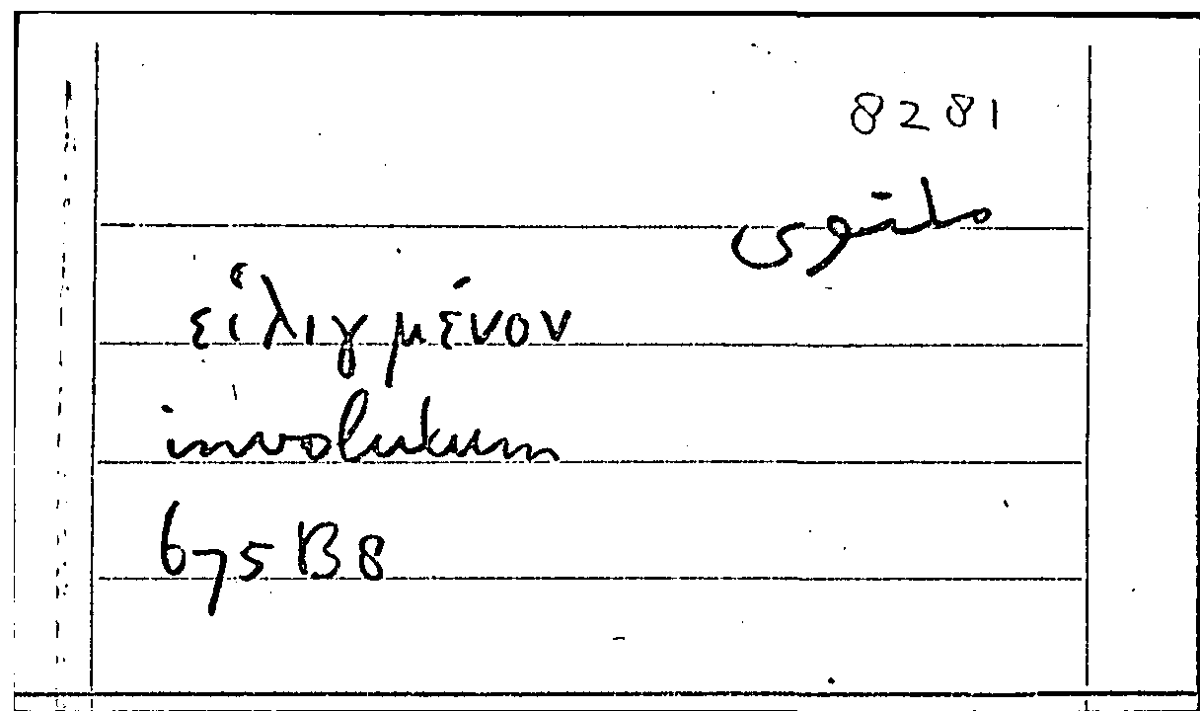 8281
ملتوى
εἱλιγμένον
involutum
675B8